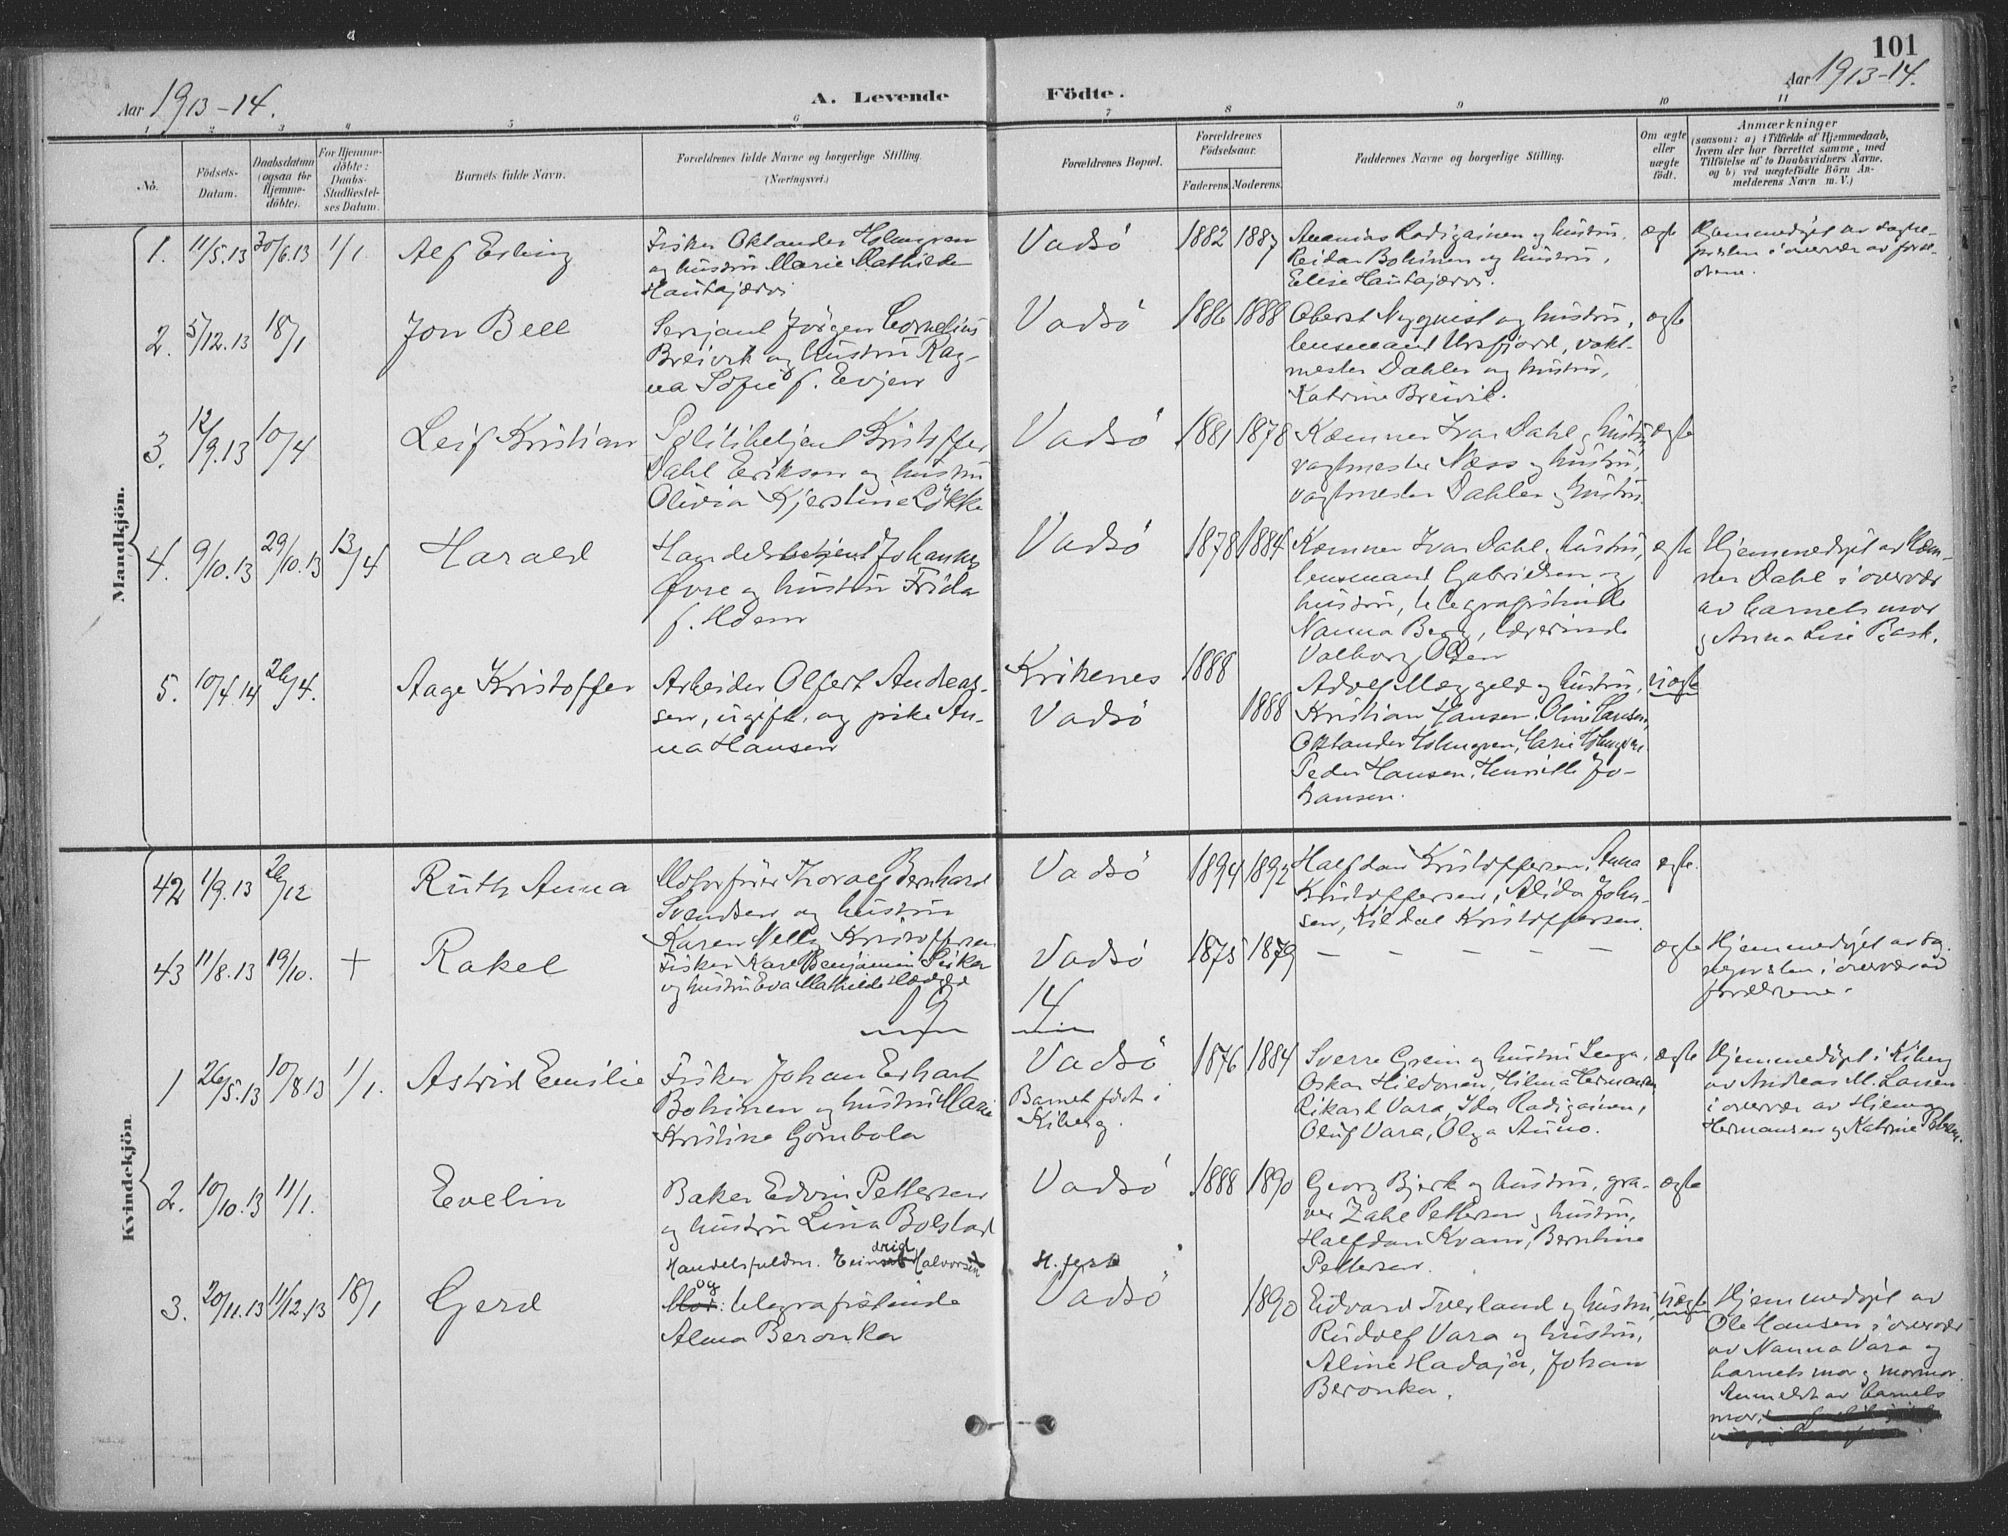 101
Aar 1913-14.
A. Levende Födte.
Aar 1913-14.
1 2 3 4 5 6 7 8 9 10 11
No.
Födsels-Datum.
Daabsdatum (ogsaa for Hjemmedöbte).
For Hjemmedöbte: Daabs-Stadfæstelses Datum.
Barnets fulde Navn.
Forældrenes fulde Navne og borgerlige Stilling.
(Næringsvei.)
Forældrenes Bopæl.
Forældrenes Födselsaar.
Faderens. Moderens.
Faddernes Navne og borgerlige Stilling.
Om ægte eller uægte födt.
Anmærkninger
(saasom: a) i Tilfælde af Hjemmedaab, hvem der har forrettet samme, med Tilföielse af to Daabsvidners Navne, og b) ved uægtefödte Börn Anmelderens Navn m. V.)
Mandkjön.
1. 11/5.13 30/6.13 1/1. Alf Erling
Fisker Oktander Holmgren
og hustru Marie Mathilde
Hautajærvi
Vadsö 1882 1887
Ananias Radigainen og hustru,
Reidar Bohinen og hustru,
Elise Hautajærvi.
ægte
Hjemmedöpt av
i overvær av foræl-
drene.
2. 5/12.13 18/1 Jon Bell
Serjant Jörgen Cornelius
Breivik og hustru Rag-
na Sofie f. Evjen
Vadsö 1886 1888
Oberst Nyquist og hustru,
lensmand Ursfjord, vakt-
mester Dahler og hustru,
Katrine Breivik.
ægte
3. 12/9.13 10/4 Leif Kristian
Politibetjent Kristoffer
Dahl Eriksen og hustru
Olivia Kjerstine Lökke
Vadsö 1881 1878
Kæmner Ivar Dahl og hustru,
vagtmester Næss og hustru,
vagtmester Dahler og hustru.
ægte
4. 9/10.13 29/10.13 13/4 Harald
Handelsbetjent Johannes
Övre og hustru Frida
f. Moen
Vadsö 1878 1884
Kæmner Ivar Dahl, hustru,
lensmand Gabrielsen og
hustru, telegrafistinde
Nanna Berg, lærerinde
Valborg Olsen
ægte
Hjemmedöpt av kæm-
ner Dahl i overvær
av barnets mor
og Anna Lise Bask.
5. 10/4.14 26/4. Aage Kristoffer
Arbeider Olfert Andreas-
sen, ugift, og pike An-
na Hansen
Kirkenes 1888
Vadsö 1888
Adolf Mæggele og hustru,
Kristian Hansen, Oline Hansen,
Oktander Holmgren, Marie Holmgren
Peder Hansen, Henriette Jo-
hansen.
uægte
Kvindekjön
42 1/9.13 26/12 Ruth Anna
Motorförer Thoralf Bernhard
Svendsen og hustru
Karen Nelly Kristoffersen
Vadsö 1894 1892
Halfdan Kristoffersen, Anna
Kristoffersen, Alida Johan-
sen, Kildal Kristoffersen.
ægte.
43 11/8.13 19/10. + Rakel
Fisker Karl Benjamin Sirka
og hustru Eva Mathilde
Vadsö 1875 1879
– – – – –
ægte
Hjemmedöpt av sog-
nepresten i overvær av
forældrene.
19 14
1 26/5.13 10/8.13 1/1. Astrid Emilie
Fisker Johan Erhart
Bohinen og hustru Marie
Kristine Gombola
Vadsö
Barnet födt i
Kiberg.
1876 1884
Sverre Grein og hustru Senga,
Oskar Hildonen, Hilma Hermansen,
Rikard Vara, Ida Radigainen,
Oluf Vara, Olga Auno.
ægte
Hjemmedöpt i Kiberg
av Andreas M. Larsen
i overvær av Hilma
Hermansen og Katrine
2. 10/10.13 11/1. Evelin
Baker Edvin Pettersen
og hustru Lina Bolstad
Vadsö 1888 1890
Georg Bjerk og hustru, gra-
ver Zahl Pettersen og hustru,
Halfdan Kvam, Berntine
Pettersen.
ægte
3. 20/11.13 11/12.13 18/1 Gerd
Handelsfuldm. Eindrid Halvorsen
og
Mor: telegrafistinde
Alma Beronka
H.fest
Vadsö
1890
Edvard Tverland og hustru,
Rudolf Vara og hustru,
Aline Hadaja, Johan
Beronka.
uægte
Hjemmedöpt av
Ole Hansen i overvær
av Nanna Vara og
barnets mor og mormor.
Anmeldt av barnets
mor.